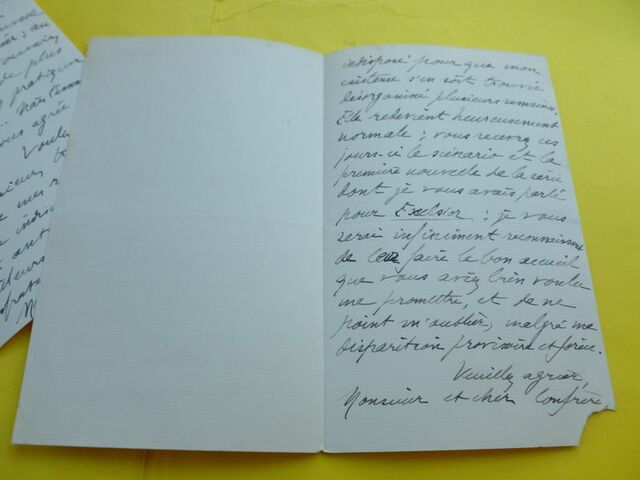 indisposé pour que mon
existence s'en soit trouvée
désorganisée plusieurs semaines.
Elle redevient heureusement
normale ; vous recevrez ces
jours-ci le scénario et la
première nouvelle de la série
dont je vous avais parlé
pour Excelsior : je vous
serai infiniment reconnaissant
de leur faire le bon accueil
que vous aviez bien voulu
me promettre, et de ne
point m'oublier, malgré ma
disparition provisoire et forcée.
Veuillez agréer,
Monsieur et cher Confrère,
plus
pratiquer
agrée